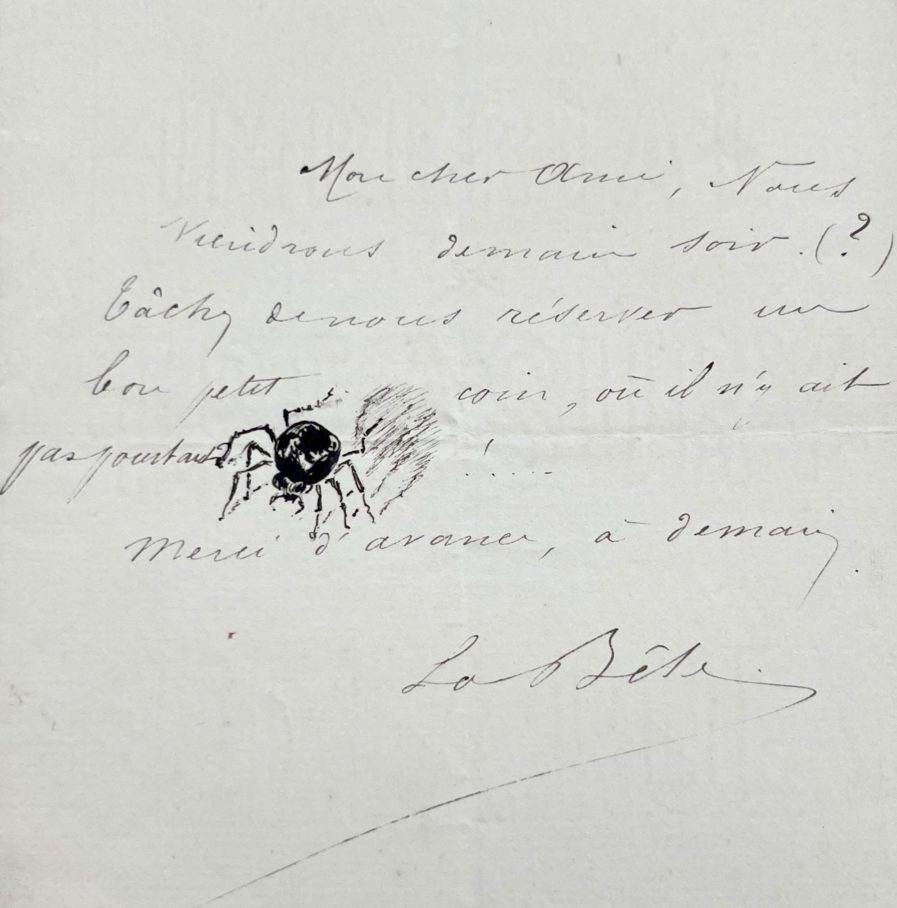 Mon cher Ami, Nous
Viendrons demain soir. (?)
Tâchez de nous réserver un
bon petit coin, où il n'y ait
pas pourtant !.....
Merci d'avance, à demain.
La Bête.